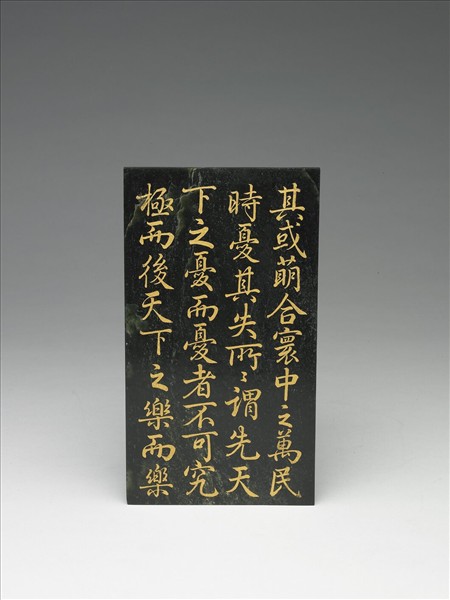 其或萌合寰中之萬民
時憂其失所〻謂先天
下之憂而憂者不可究
極而後天下之樂而樂